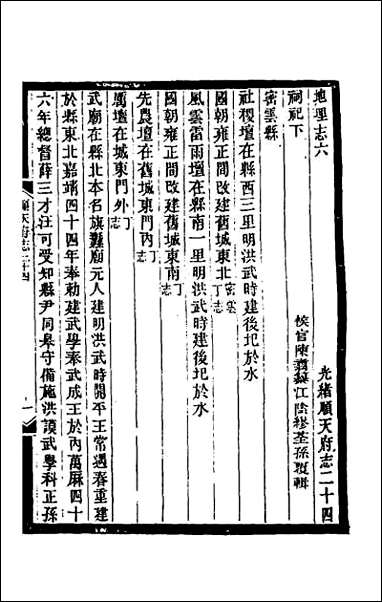 光緒順天府志二十四
地理志六
侯官陳翥纂江陰繆荃孫覆輯
祠祀下
密雲縣
社稷壇在縣西三里明洪武時建後圯於水
國朝雍正間改建舊城東北密雲丁志
風雲雷雨壇在縣南一里明洪武時建後圯於水
國朝雍正間改建舊城東南丁志
先農壇在舊城東門內丁志
厲壇在城東門外丁志
武廟在縣北本名旗纛廟元人建明洪武時開平王常遇春重建
於縣東北嘉靖四十四年奉勅建武學奉武成王於內萬厤四十
六年總督薛三才汪可受知縣尹同皋守備施洪謨武學科正孫
順天府志二十四
一